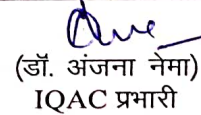 (डॉ. अंजना नेमा)
IQAC प्रभारी